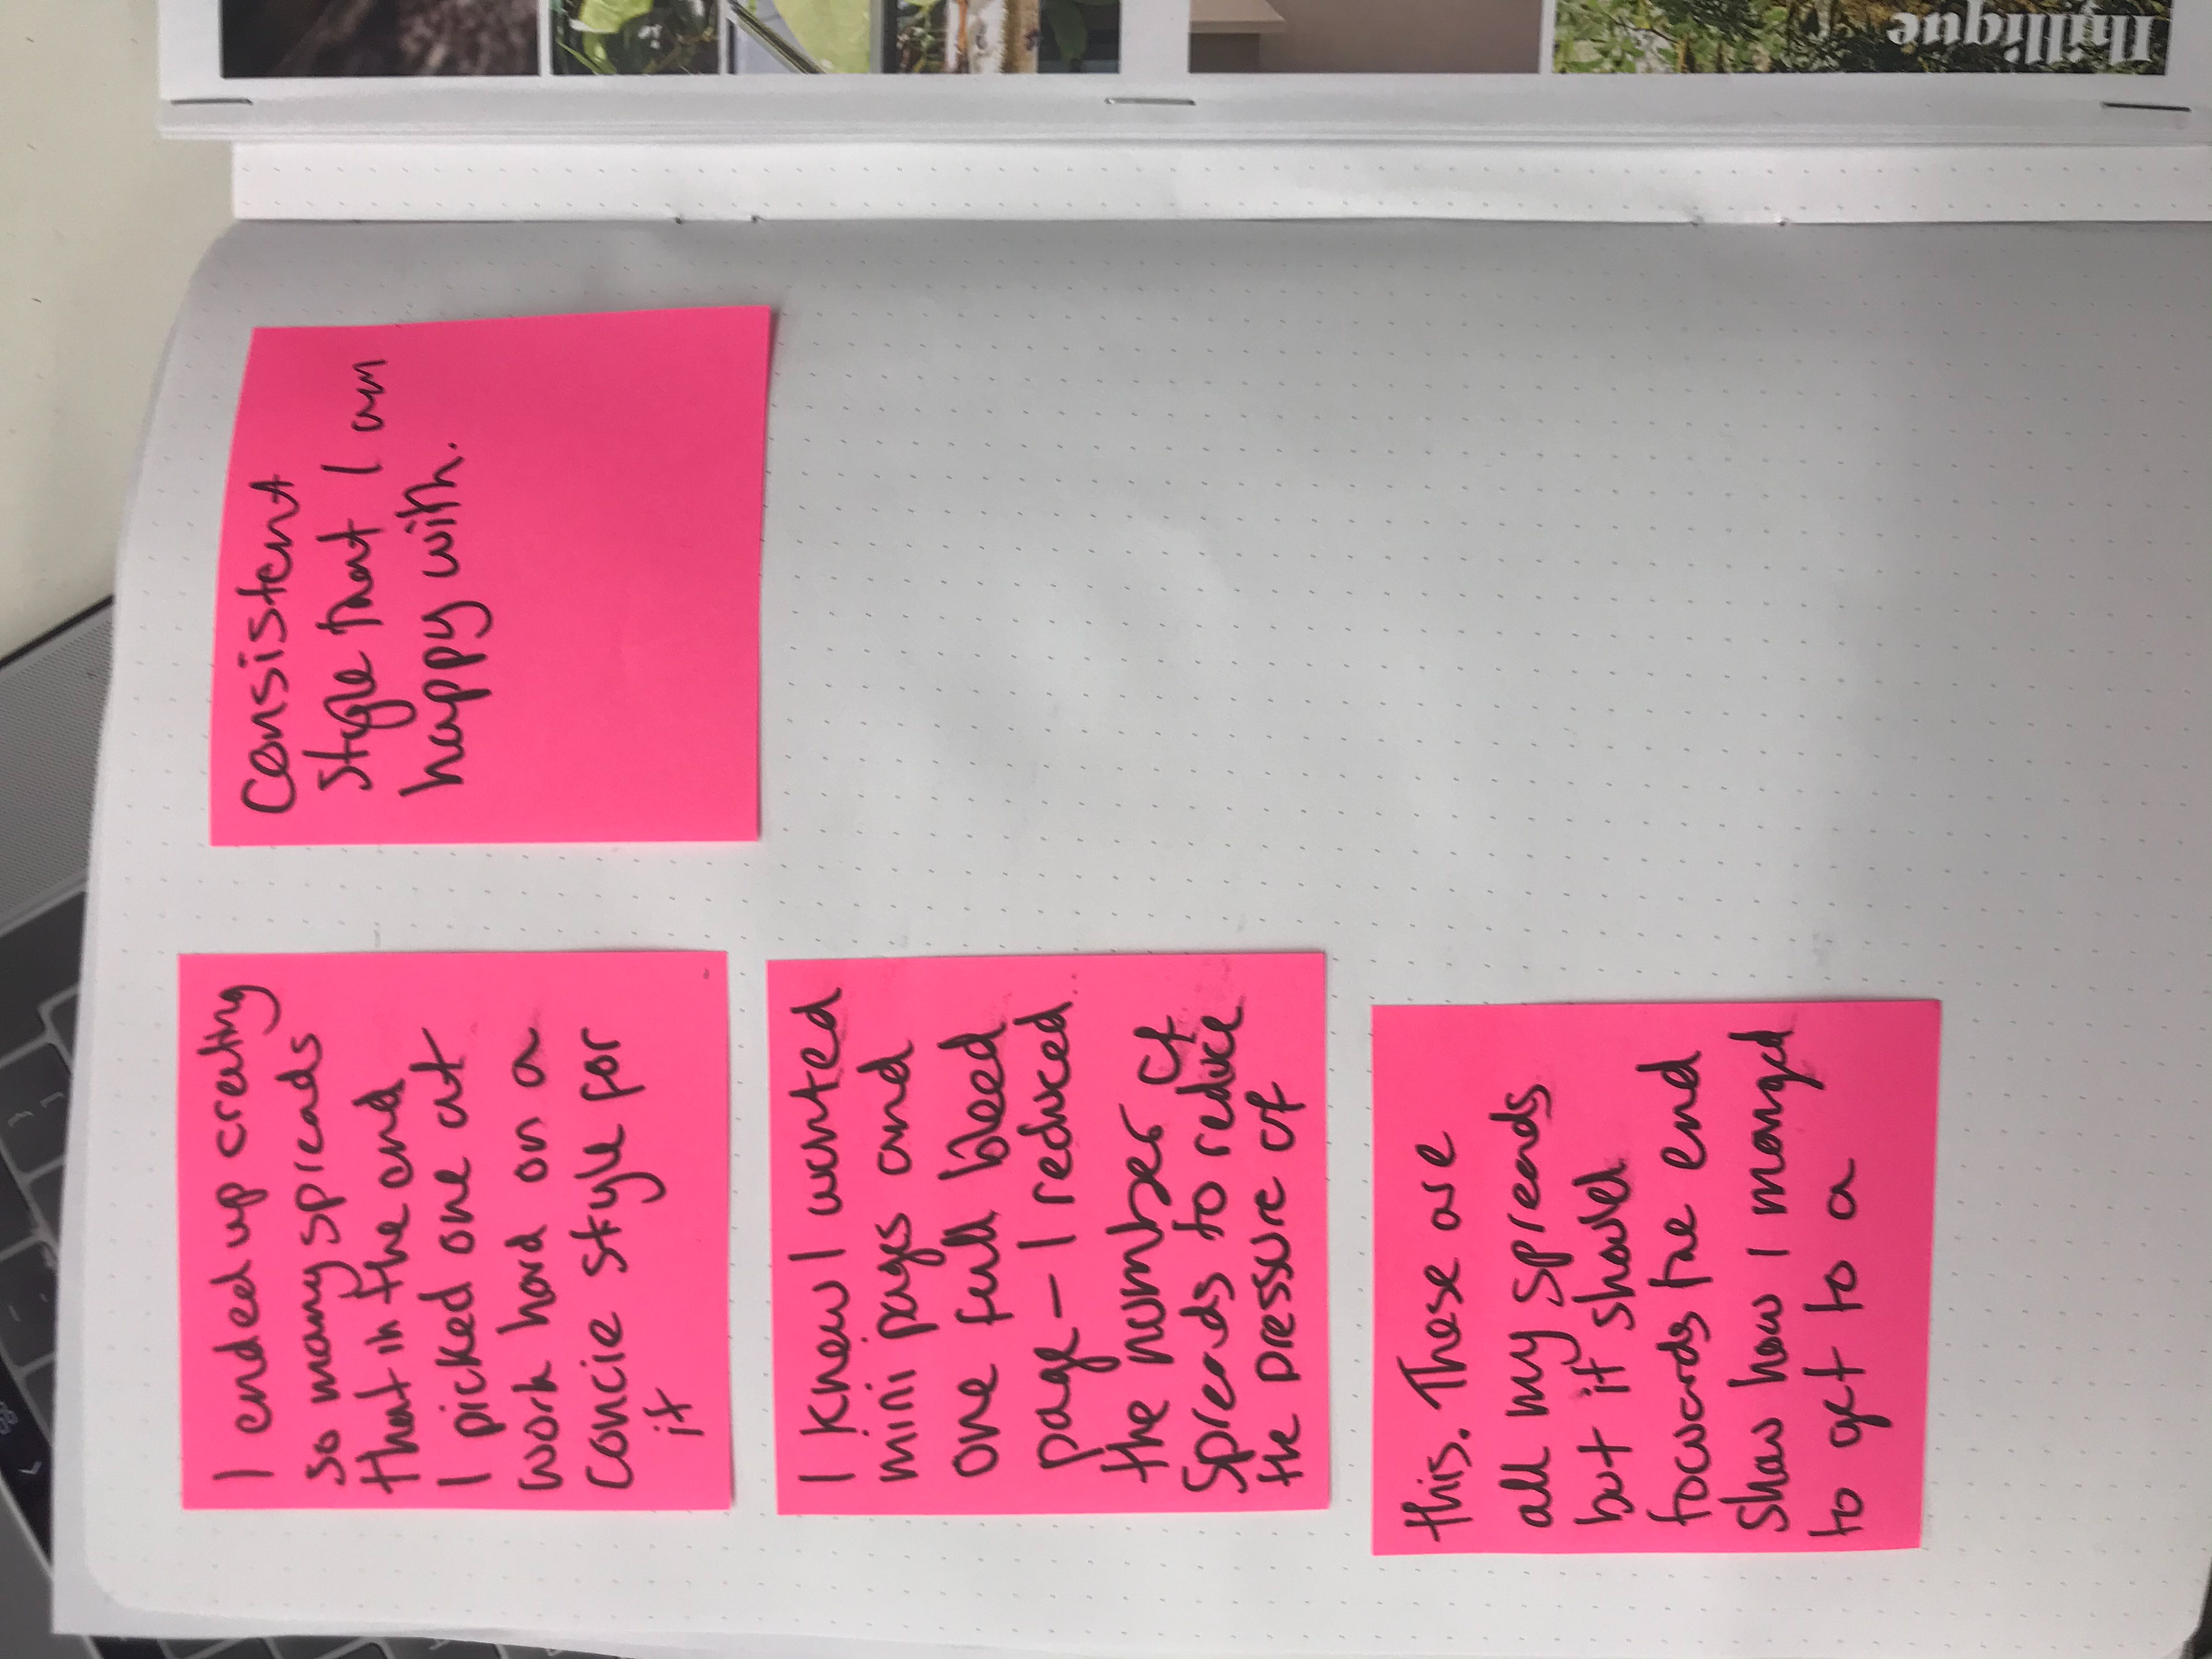 I ended up creating
so many spreads
that in the end
I picked one at
work hard on a
concie style for
it
I knew I wanted
mini pages and
one full bleed
page - I reduced
the number of
spreads to reduce
the pressure of
this. These are
all my spreads
but it should
towards the end
show how I manged
to get to a
consistent
style that I am
happy with.